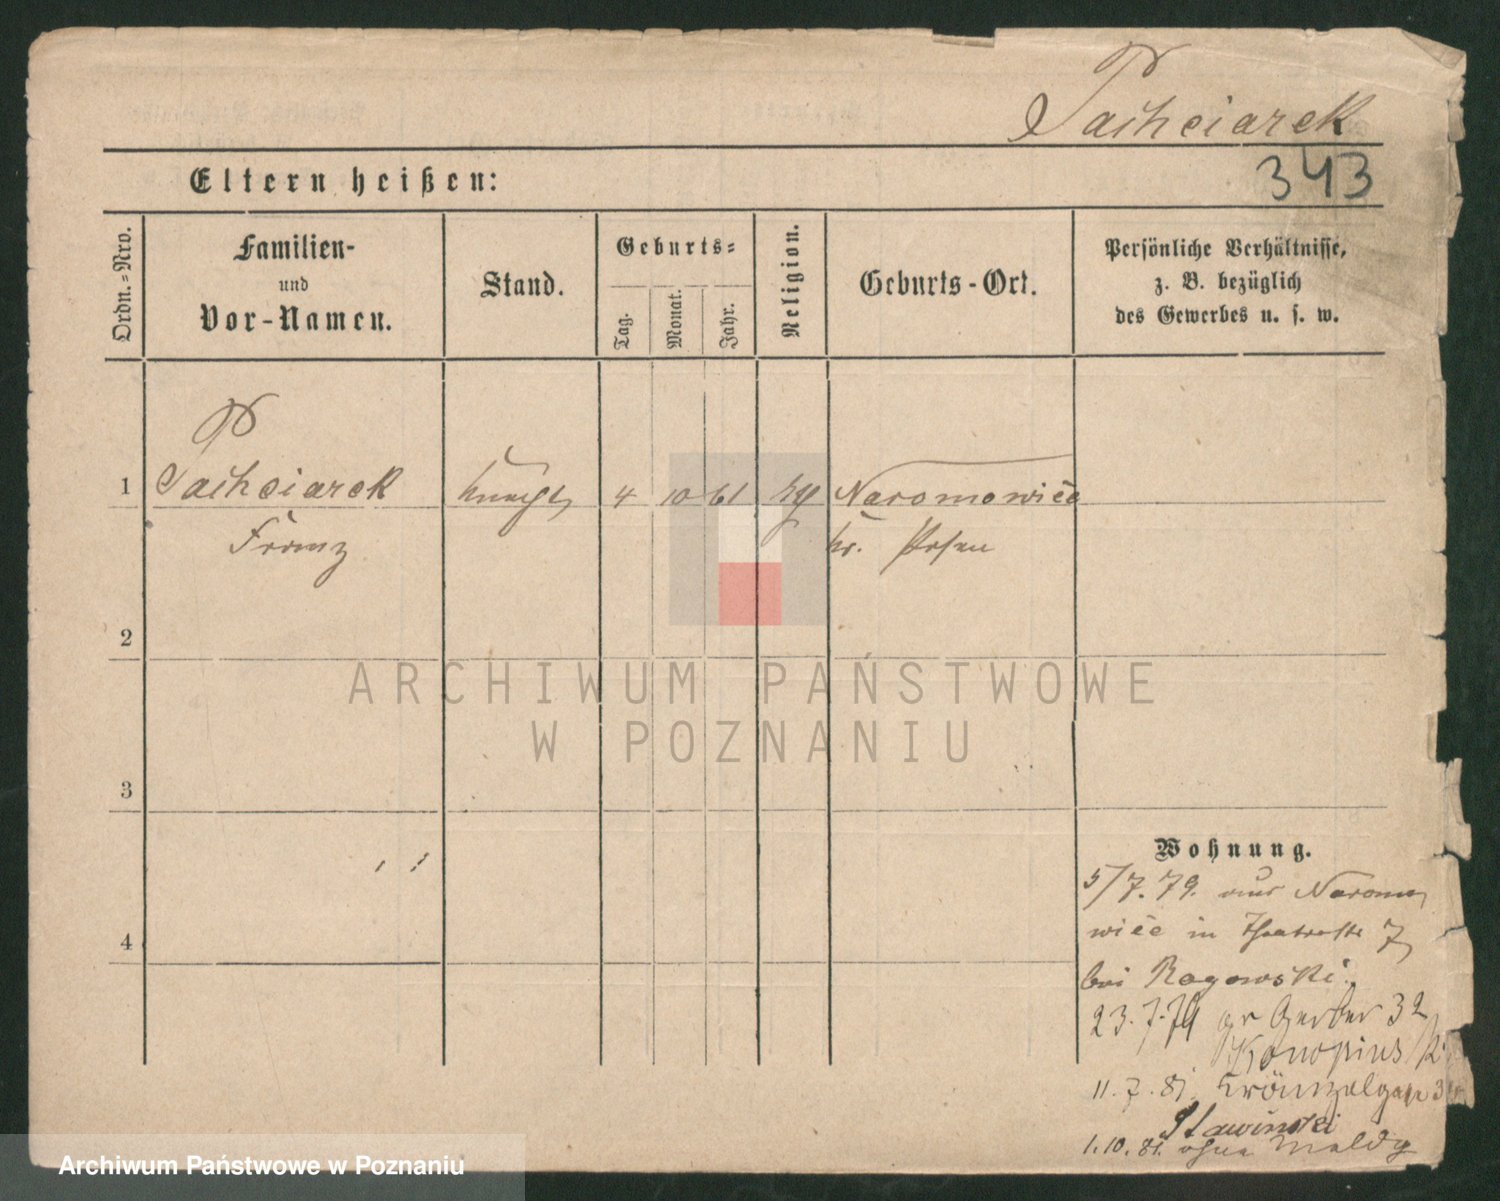 Pachciarek
343
Eltern heißen:
Ordn.-Nro.
Familien-
und
Vor-Namen.
Stand.
Geburts-
Tag.
Monat.
Jahr.
Religion.
Geburts-Ort.
Persönliche Verhältnisse,
z. B. bezüglich
des Gewerbes u. s. w.
1 Pachciarek Knecht 4 10 61 Naromowice
Franz Kr. Posen
2
3
4
ARCHIWUM PAŃSTWOWE
W POZNANIU
Wohnung.
5/7.79. aus Naromo
wice in 7
bei Rogowski.
23.7.79 gr Gerber 32
Konopius
11.7.81. 34
Stawinski
1.10.81. ohne Meldg
Archiwum Państwowe w Poznaniu